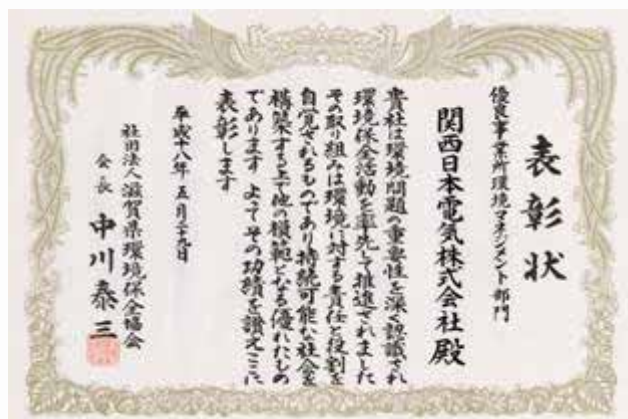 表彰状
優良事業所環境マネジメント部門
関西日本電気株式会社殿
貴社は環境問題の重要性を深く認識され
環境保全活動を率先して推進されました
その取り組みは環境に対する責任と役割を
自覚されるものであり持続可能な社会を
構築する上で他の模範となる優れたもの
であります よってその功績を讃えここに
表彰します
平成十八年五月二十九日
社団法人滋賀県環境保全協会
会長 中川泰三